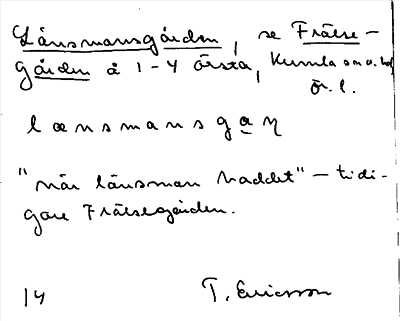 Länsmansgården, se Frälse-
gården å 1-4 Örsta, Kumla sn o. hd
Ör. l.
l æ n s m a n s g a̲ ɳ
"när länsman baddet" – tidi-
gare Frälsegården.
14 T. Ericsson